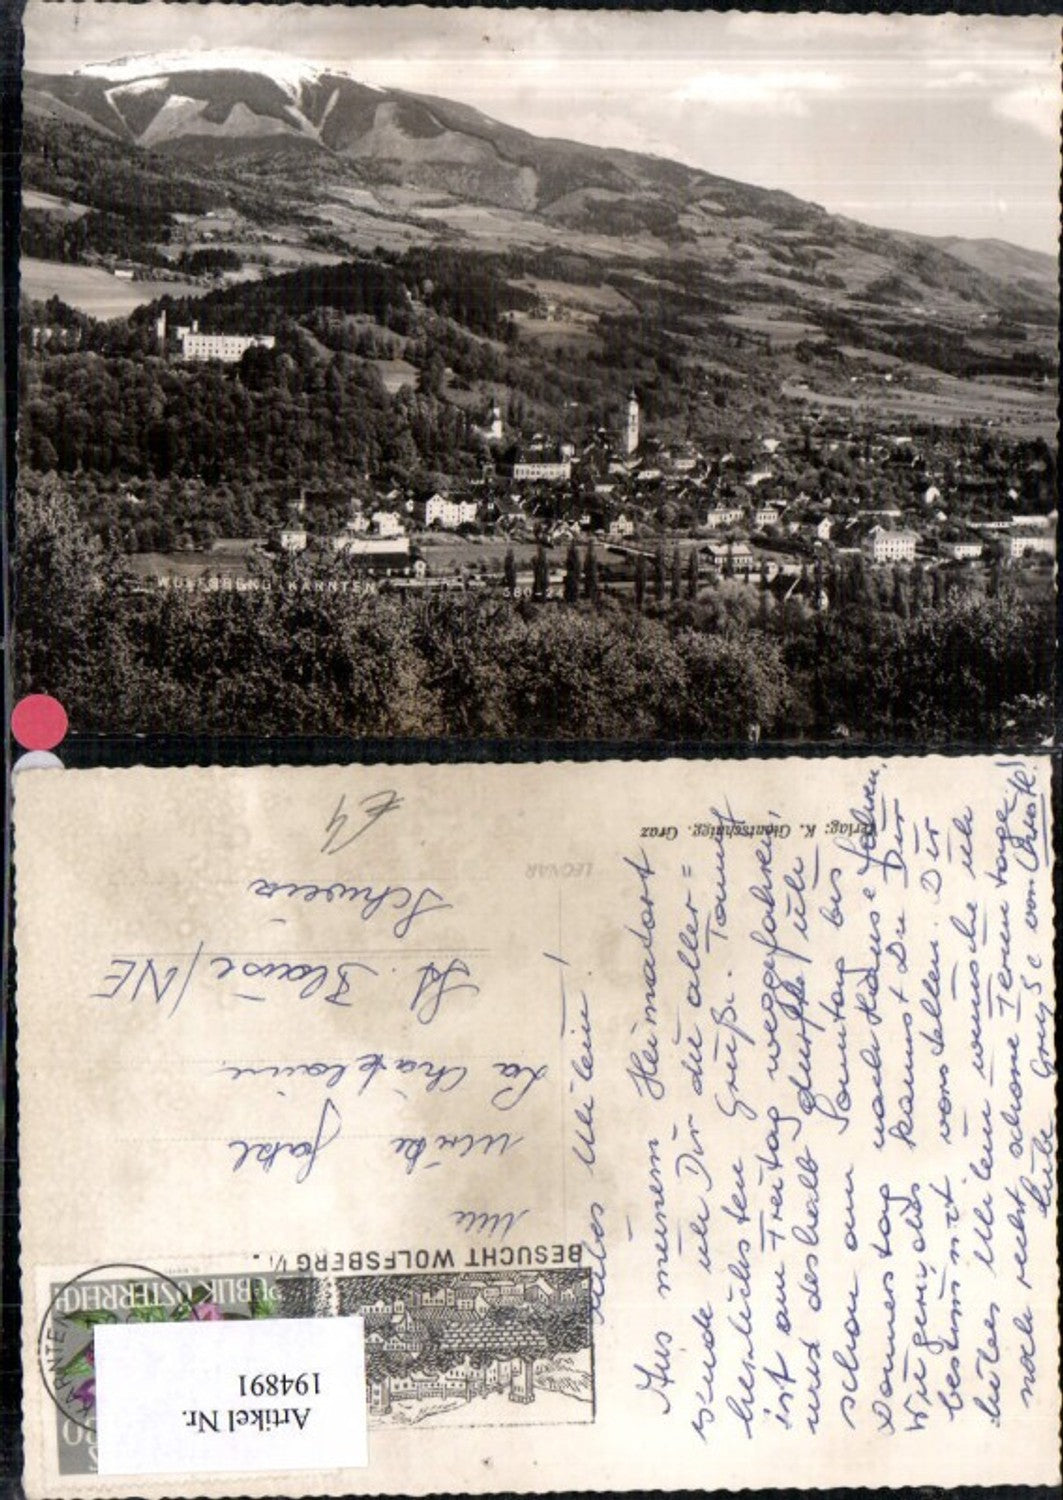 WOLFSBERG KÄRNTEN
380-24
Verlag: K. Glantschnigg, Graz
LEONAR
£4
BESUCHT WOLFSBERG
REPUBLIK ÖSTERREICH
KÄRNTEN
Artikel Nr.
194891
Ulrike
La Châtelaine
St. Blaise/NE
Schweiz
Liebes Ulilein!
Aus meinem Heimadort
sende ich Dir die aller=
herzlichsten Grüße. Tommy
ist am Freitag weggefahren,
und deshalb durfte ich
schon am Sonntag bis
Donnerstag nach Hause fahren.
Wie gern, das kannst Du Dir
bestimmt vorstellen. Dir
liebes Ulilein wünsche ich
noch recht schöne Ferientage.
Liebe Grüße von